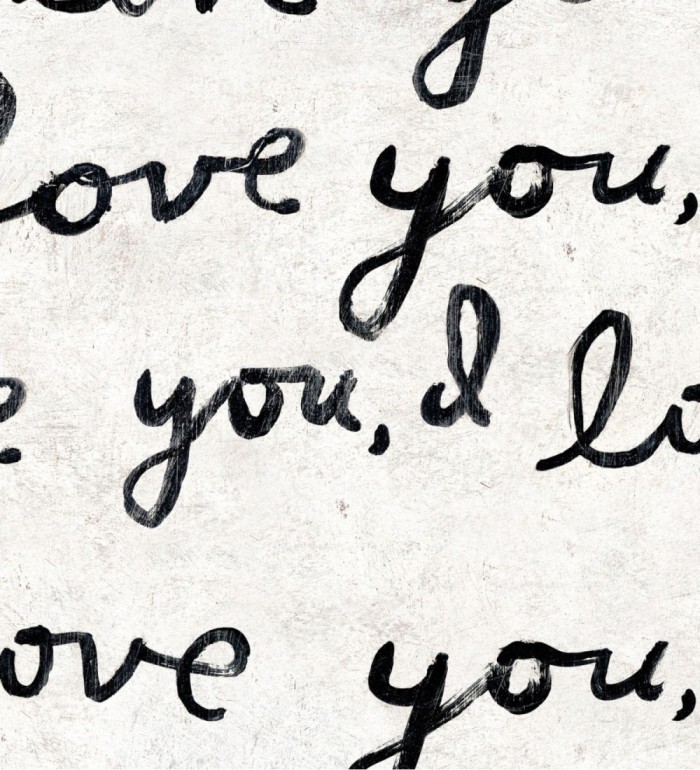 love you,
you, I lo
ove you,